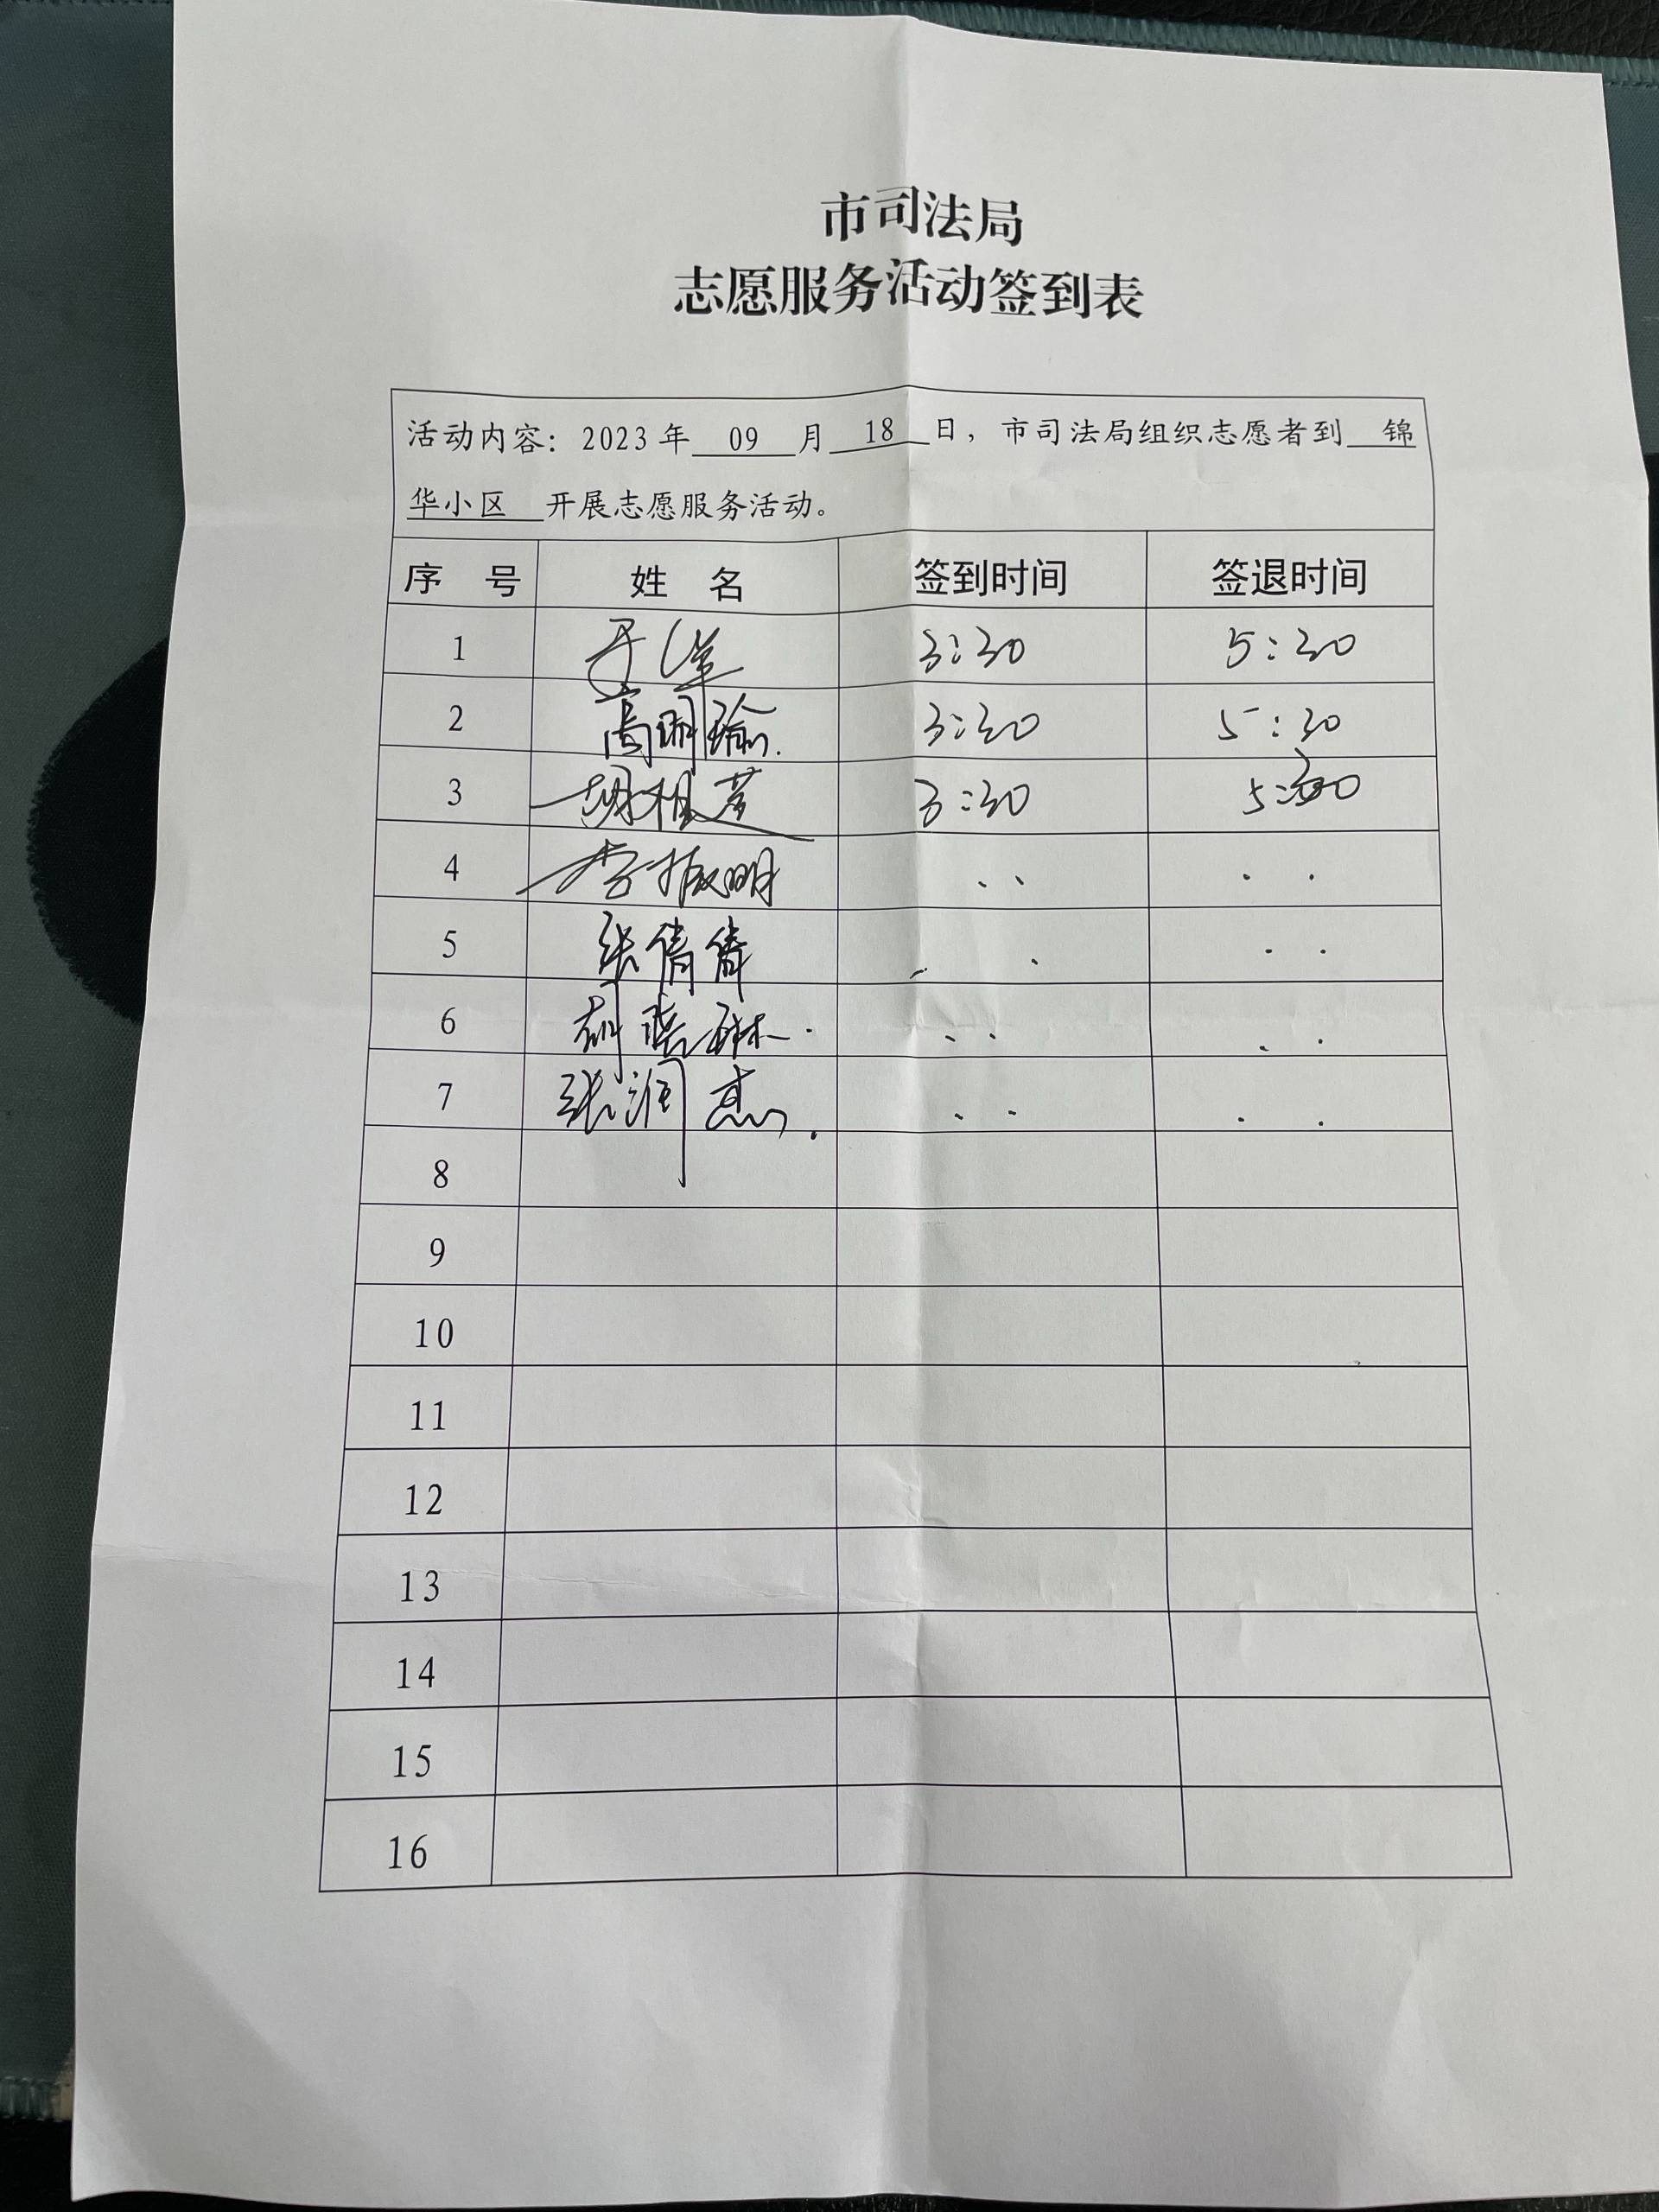 市司法局
志愿服务活动签到表
活动内容：2023年 09 月 18 日，市司法局组织志愿者到 锦
华小区 开展志愿服务活动。
序 号 姓 名 签到时间 签退时间
1 3:30 5:30
2 高明瑜. 3:30 5:30
3 胡 3:30 5:30
4 李振明 、、 . .
5 张倩倩 . . . .
6 . . . .
7 张润杰. . . . .
8
9
10
11
12
13
14
15
16